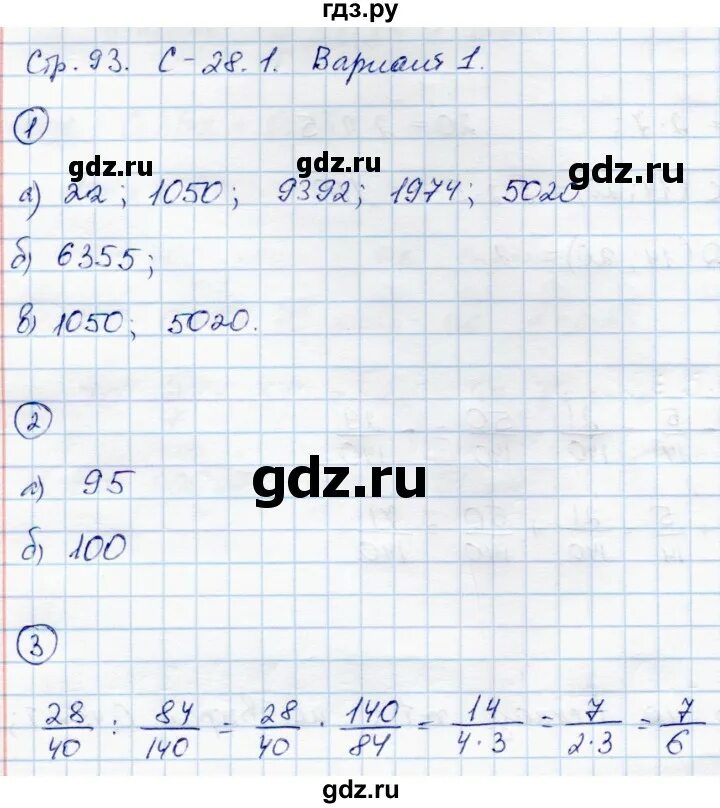 гдз.ру
Стр. 93. С-28.1. Вариант 1.
1
gdz.ru gdz.ru gdz.ru
а) 22; 1050; 9392; 1974; 5020
б) 6355;
в) 1050; 5020.
2
gdz.ru
а) 95
б) 100
3
28/40 : 84/140 = 28/40 · 140/84 = 14/4·3 = 7/2·3 = 7/6
gdz.ru